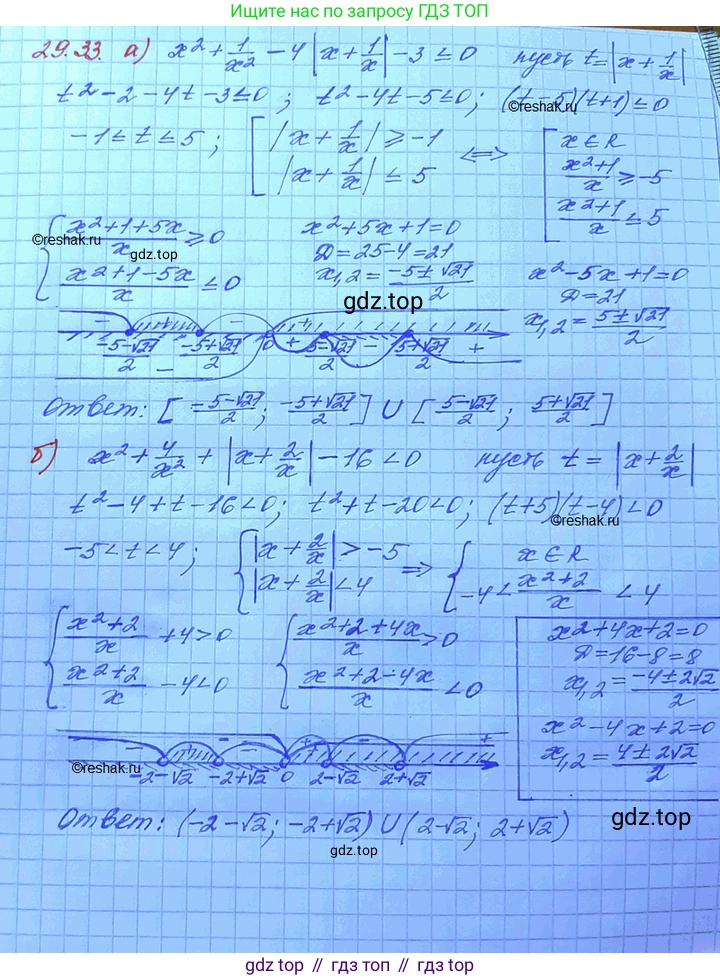 Ищите нас по запросу ГДЗ ТОП
29.33. а) x² + 1/x² - 4|x + 1/x| - 3 ≤ 0 пусть t = |x + 1/x|
t² - 2 - 4t - 3 ≤ 0 ; t² - 4t - 5 ≤ 0 ; (t - 5)(t + 1) ≤ 0
©reshak.ru
-1 ≤ t ≤ 5 ; [ |x + 1/x| ≥ -1 |x + 1/x| ≤ 5 <=> [ x ∈ R x²+1/x ≥ -5 x²+1/x ≤ 5
{ x²+1+5x/x ≥ 0 x²+1-5x/x ≤ 0
©reshak.ru
gdz.top
x² + 5x + 1 = 0
D = 25 - 4 = 21
x1,2 = -5±√21/2
gdz.top
x² - 5x + 1 = 0
D = 21
x1,2 = 5±√21/2
+ - + + - +
-5-√21/2 -5+√21/2 0 5-√21/2 5+√21/2
-
Ответ: [-5-√21/2 ; -5+√21/2] U [5-√21/2 ; 5+√21/2]
б) x² + 4/x² + |x + 2/x| - 16 < 0 пусть t = |x + 2/x|
t² - 4 + t - 16 < 0 ; t² + t - 20 < 0 ; (t + 5)(t - 4) < 0
©reshak.ru
-5 < t < 4 ; { |x + 2/x| > -5 |x + 2/x| < 4 => { x ∈ R -4 < x²+2/x < 4
{ x²+2/x + 4 > 0 x²+2/x - 4 < 0 { x²+2+4x/x > 0 x²+2-4x/x < 0
x² + 4x + 2 = 0
D = 16 - 8 = 8
x1,2 = -4±2√2/2
x² - 4x + 2 = 0
x1,2 = 4±2√2/2
- + - + - +
©reshak.ru
-2-√2 -2+√2 0 2-√2 2+√2
gdz.top
Ответ: (-2-√2 ; -2+√2) U (2-√2 ; 2+√2)
gdz.top
gdz top // гдз топ // gdz top // гдз топ